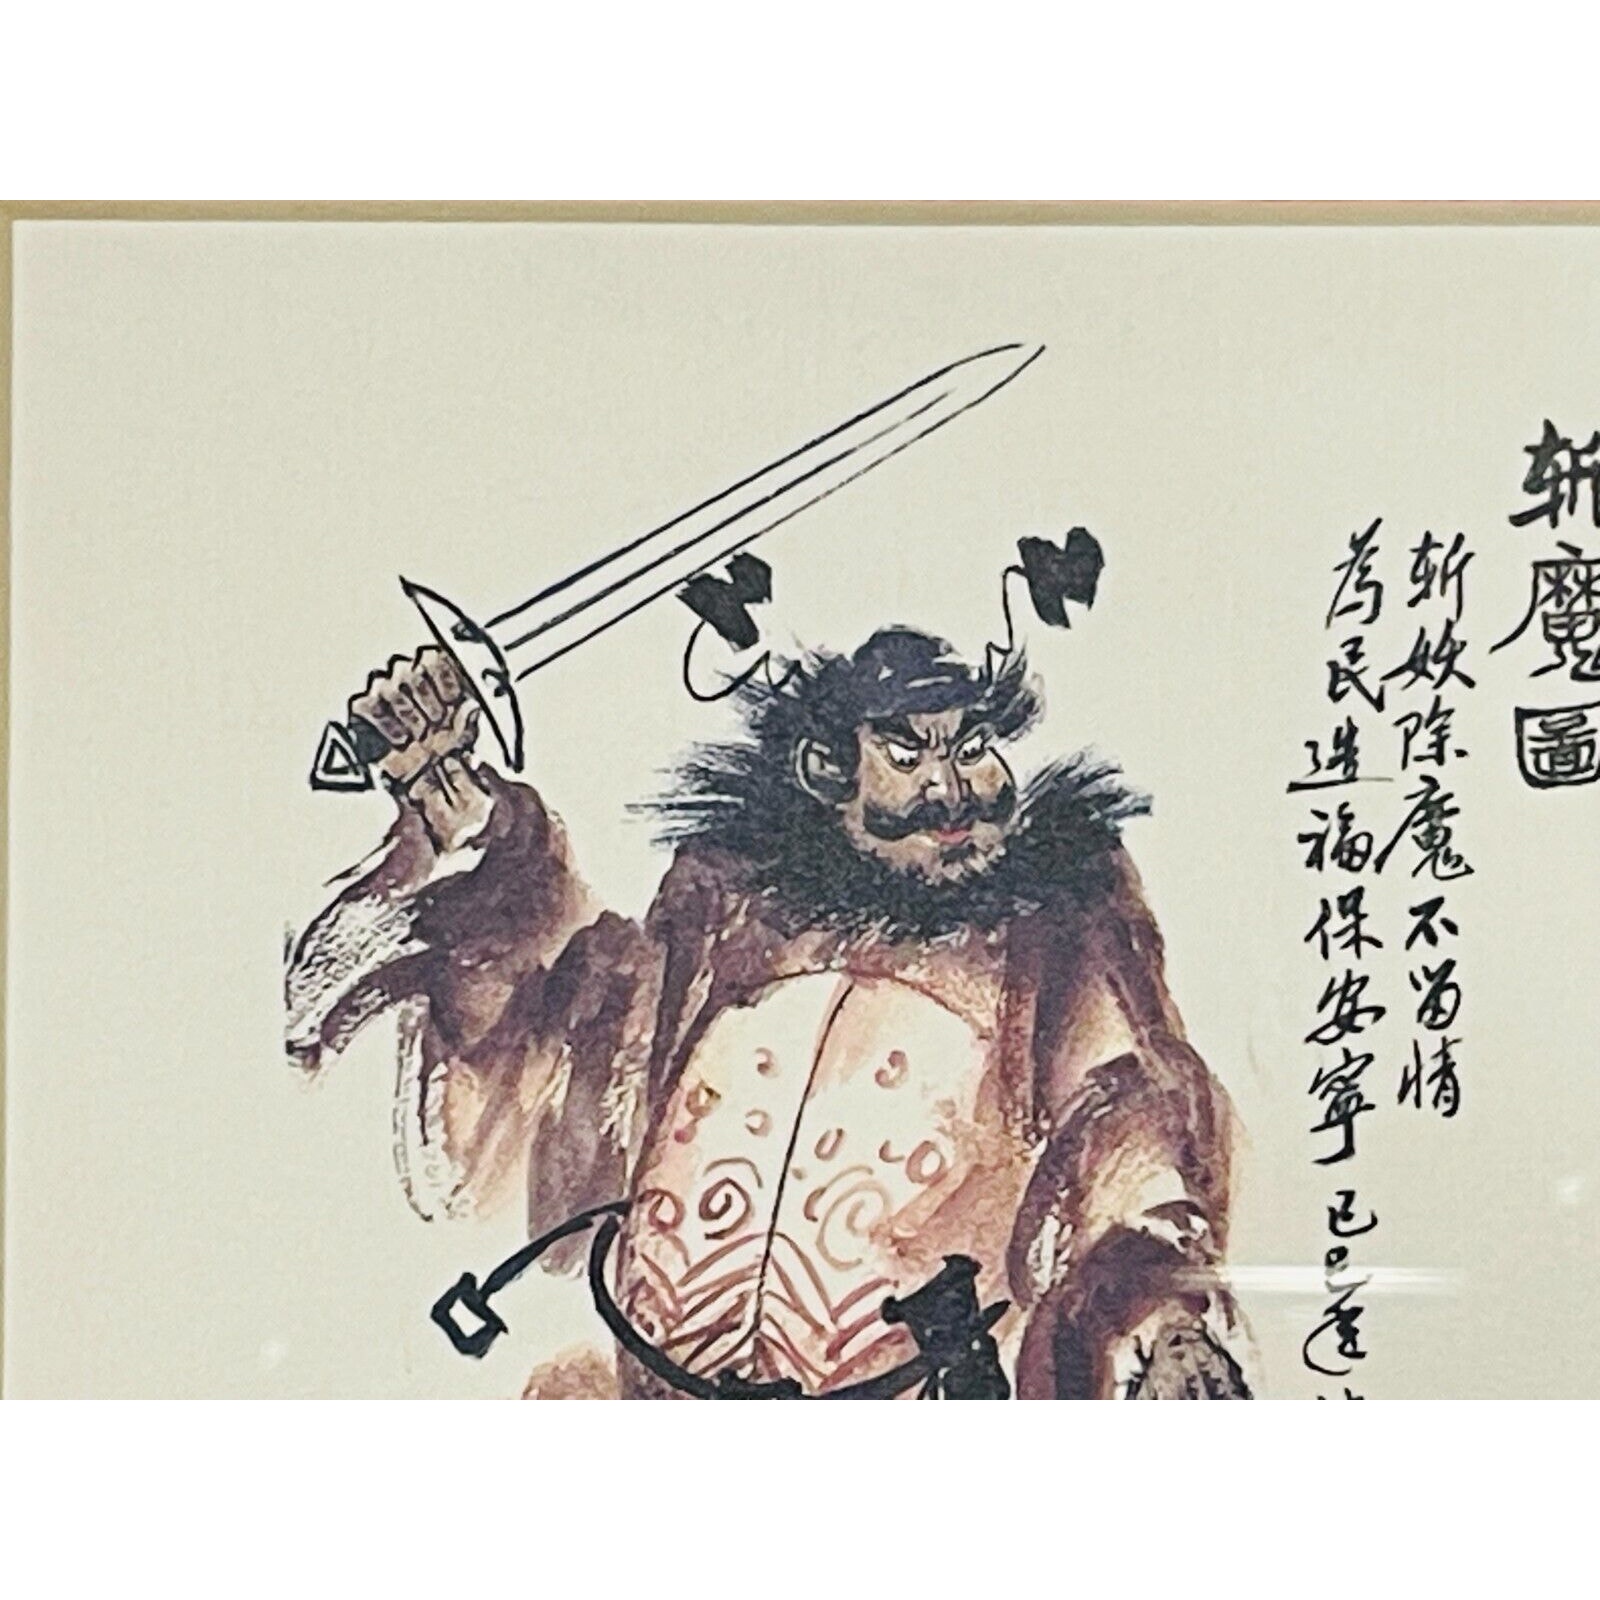 斬魔圖
斬妖除魔不留情
為民造福保安寧 己巳年